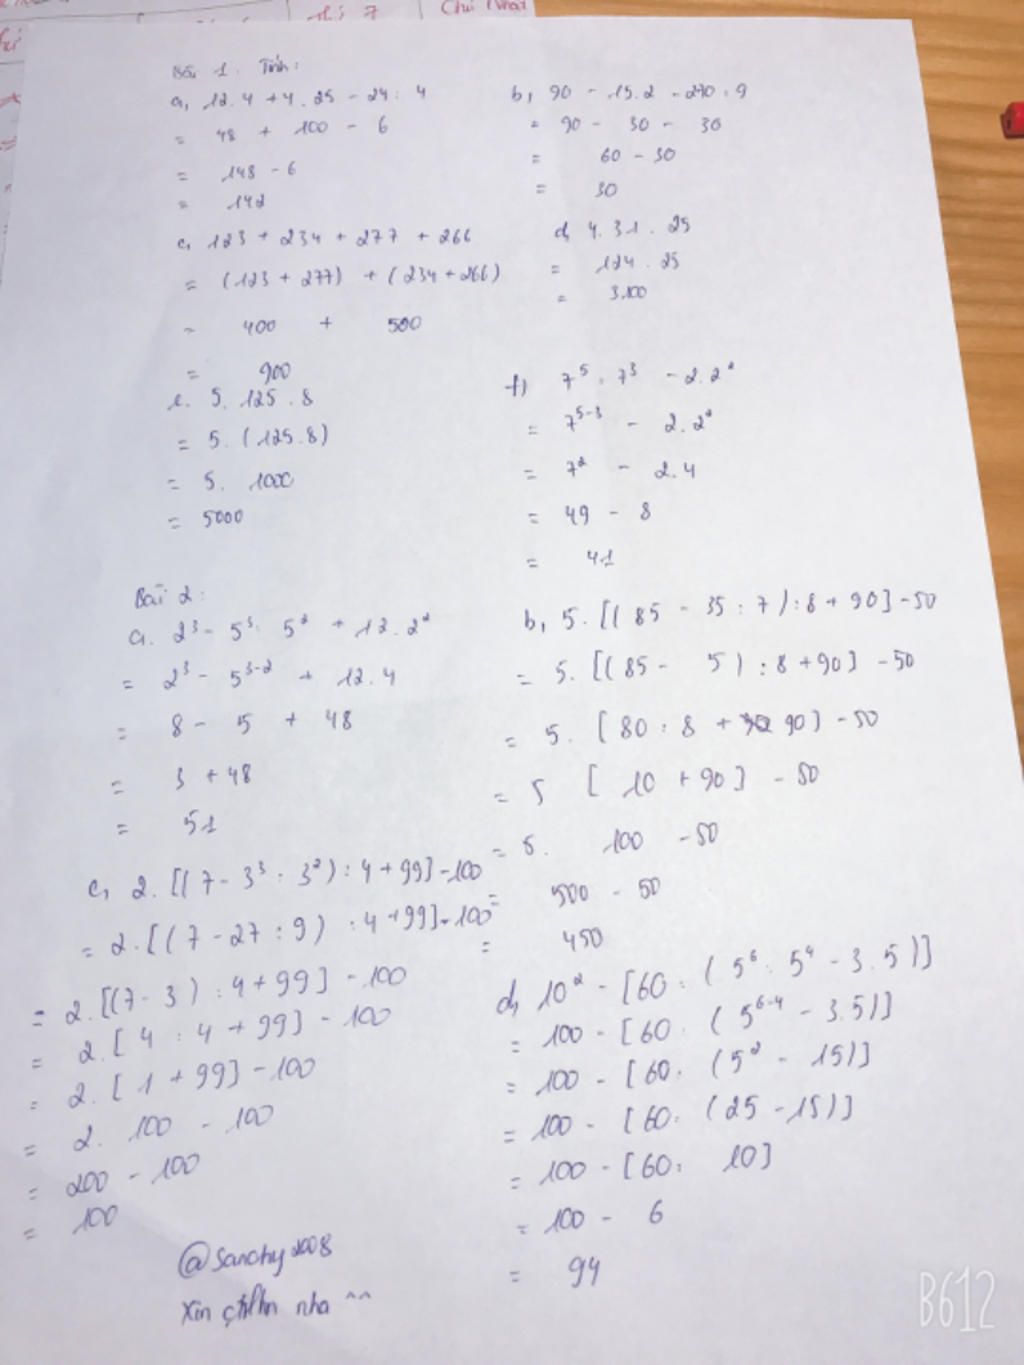 thứ 7
Chủ Nhật
Bài 1. Tính:
a, 12.4 + 4.25 - 24 : 4
= 48 + 100 - 6
= 148 - 6
= 142
b, 90 - 15.2 - 270 : 9
= 90 - 30 - 30
= 60 - 30
= 30
c, 123 + 234 + 277 + 266
= (123 + 277) + (234 + 266)
= 400 + 500
= 900
d, 4.31.25
= 124.25
= 3.100
e. 5.125.8
= 5.(125.8)
= 5.1000
= 5000
f) 7⁵ : 7³ - 2.2²
= 7⁵⁻³ - 2.2²
= 7² - 2.4
= 49 - 8
= 41
Bài 2:
a. 2³ - 5³ : 5² + 12.2²
= 2³ - 5³⁻² + 12.4
= 8 - 5 + 48
= 3 + 48
= 51
b, 5.[(85 - 35 : 7) : 8 + 90] - 50
= 5.[(85 - 5) : 8 + 90] - 50
= 5.[80 : 8 + 90] - 50
= 5 [10 + 90] - 50
= 5. 100 - 50
= 500 - 50
= 450
c, 2.[(7 - 3³ : 3²) : 4 + 99] - 100
= 2.[(7 - 27 : 9) : 4 + 99] - 100
= 2.[(7 - 3) : 4 + 99] - 100
= 2.[4 : 4 + 99] - 100
= 2.[1 + 99] - 100
= 2. 100 - 100
= 200 - 100
= 100
d, 10² - [60 : (5⁶ : 5⁴ - 3.5)]
= 100 - [60 : (5⁶⁻⁴ - 3.5)]
= 100 - [60 : (5² - 15)]
= 100 - [60 : (25 - 15)]
= 100 - [60 : 10]
= 100 - 6
= 94
@Sanchy2008
Xin ctlhn nha ^^
B612